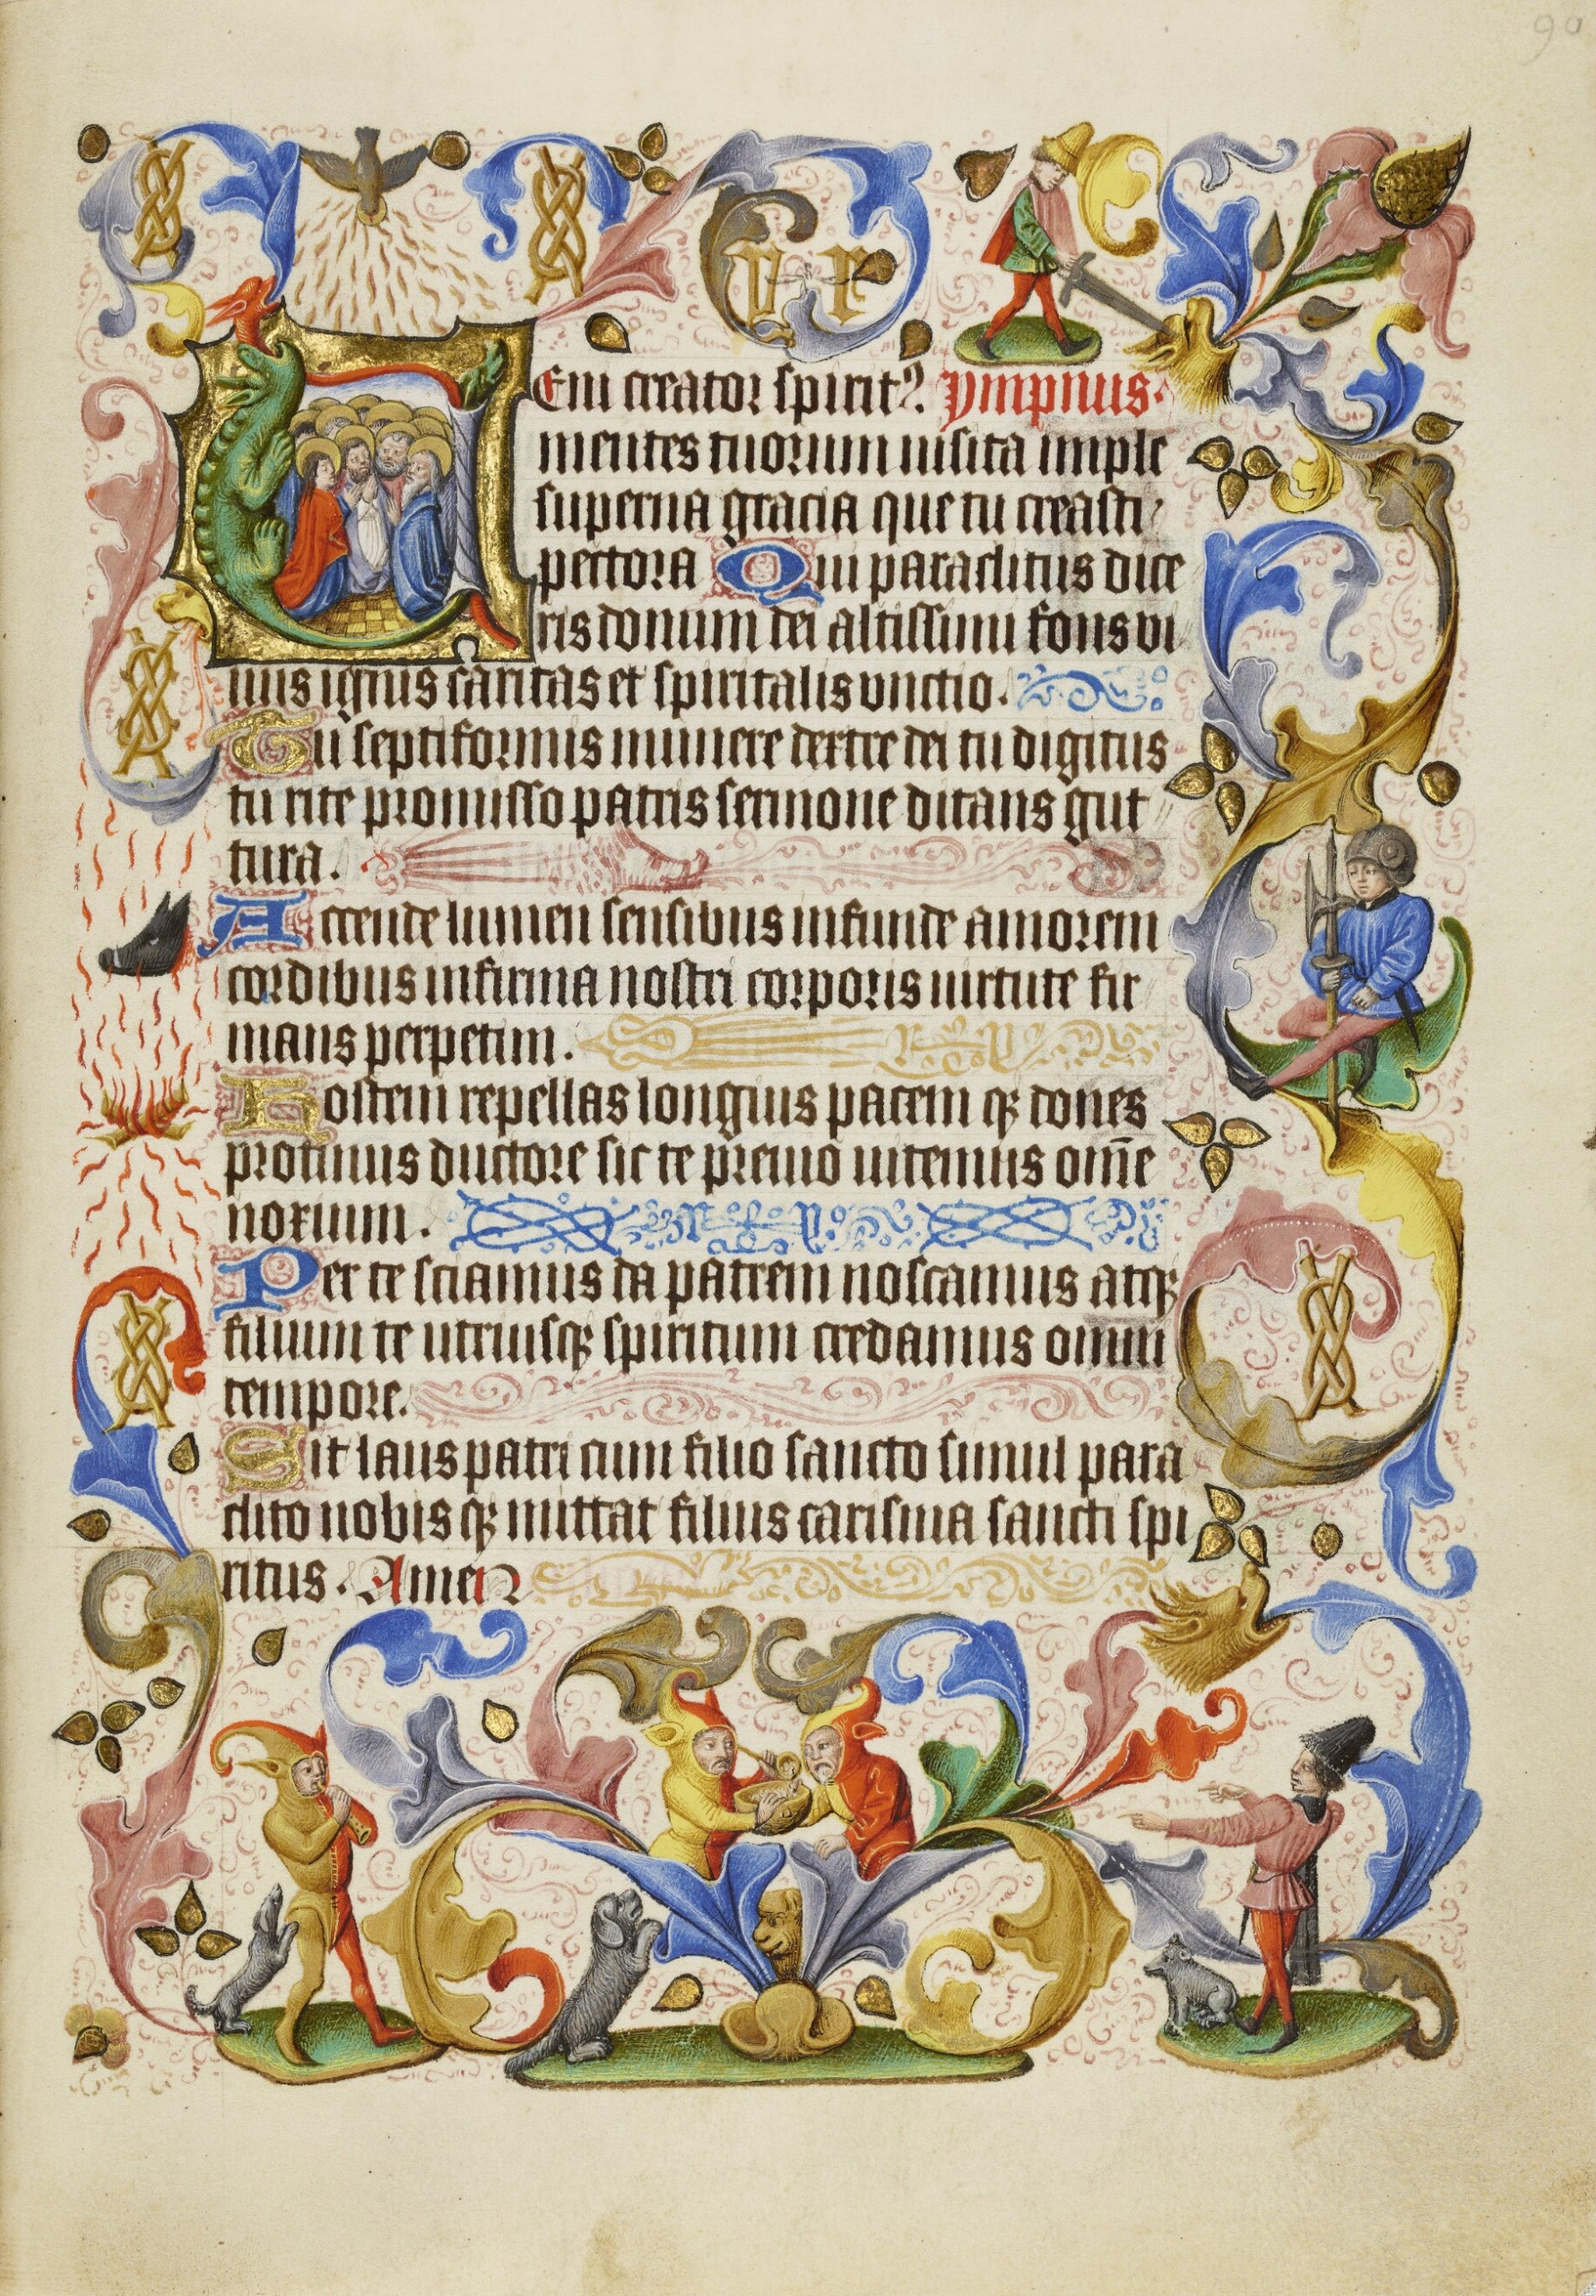 90
V R
VEni creator spirit⁹. Ympnus.
mentes tuorum uisita imple
superna gracia que tu creasti
pectora Qui paraclitus dice
ris donum dei altissimi fons vi
uus ignis caritas et spiritalis vnctio.
Tu septiformis munere dextre dei tu digitus
tu rite promisso patris sermone ditans gut
tura.
Accende lumen sensibus infunde amorem
cordibus infirma nostri corporis uirtute fir
mans perpetim.
Hostem repellas longius pacem qꝫ dones
protinus ductore sic te preuio uitemus om̄e
noxium.
Per te sciamus da patrem noscamus atqꝫ
filium te utriusqꝫ spiritum credamus omni
tempore.
Sit laus patri cum filio sancto simul para
clito nobis qꝫ mittat filius carisma sancti spi
ritus. Amen